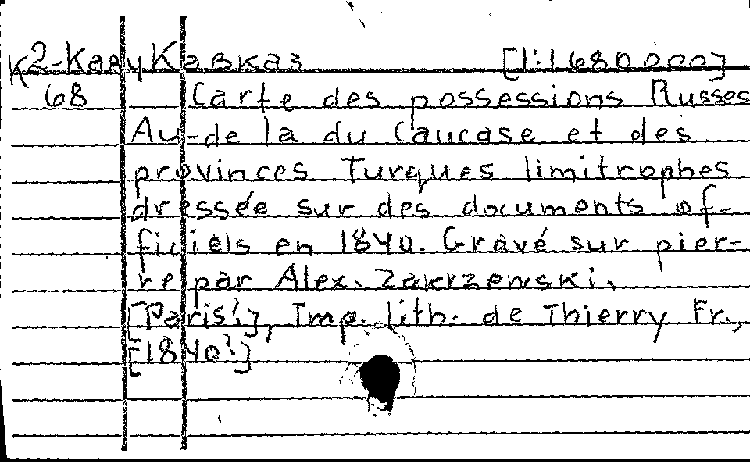 K2-Кавк Кавказ [1:1680000]
68 Carte des possessions Russes
Au-de la du Caucase et des
provinces Turques limitrophes
dressée sur des documents of-
ficiels en 1840. Gravé sur pier-
re par Alex. Zakrzewski.
[Paris?], Imp. lith. de Thierry Fr.,
[1840?]